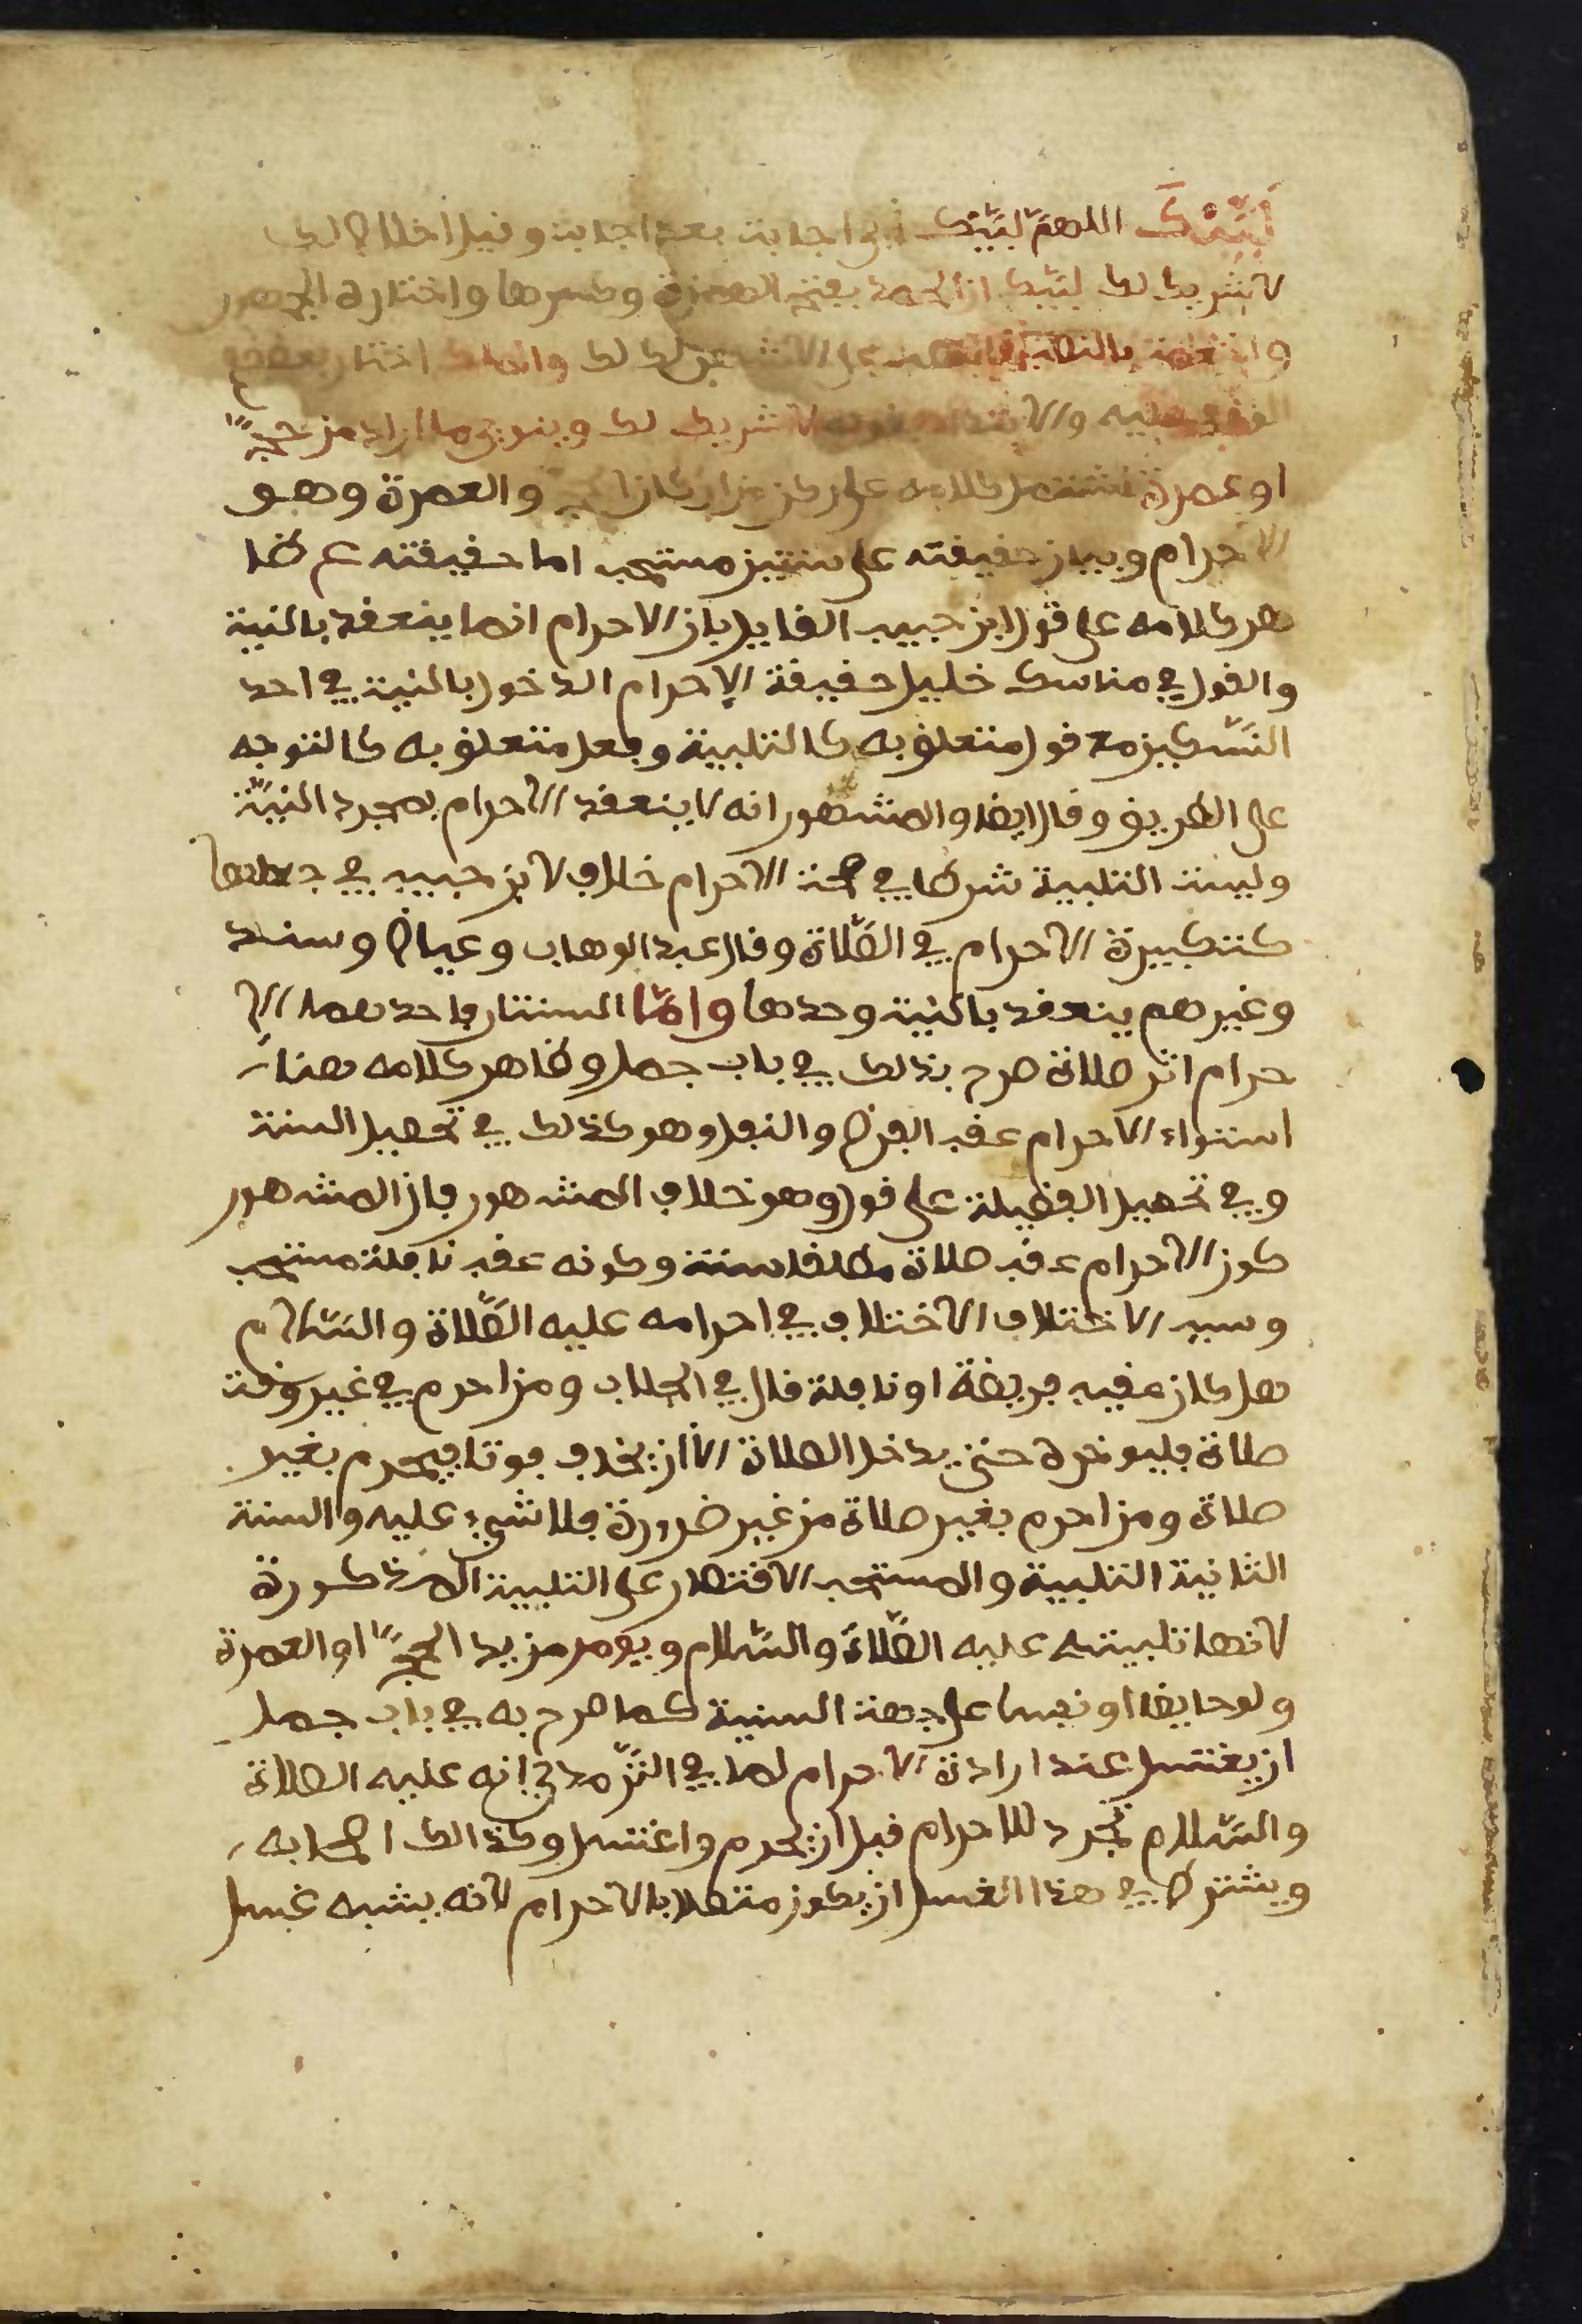 لَبَّيْكَ اللهمّ لبّيك أي اجابة بعد اجابة وقيل اخلاصا لك
لا شريك لك لبّيك ان الحمد بفتح الهمزة وكسرها واختاره الجمهور
والنعمة بالنصب لك والملك اختار بعضهم
الوقف عليه لا شريك لك وينوي ما اراد من حجّ
او عمرة اشتمل كلامه على ركن من اركان الحج والعمرة وهو
الاحرام وبيان حقيقته على سنتين مستحب اما حقيقته فظا
هر كلامه على قول ابن حبيب القايل بان الاحرام انما ينعقد بالنية
والقول في مناسك خليل حقيقة الاحرام الدخول بالنية في احد
النسّكين مع قول متعلق به كالتلبية وفعل متعلق به كالتوجه
على الطريق وقال ايضا والمشهور انه لا ينعقد الاحرام بمجرد النيّة
وليست التلبية شرطا في صحة الاحرام خلاف لابن حبيب في جعلها
كتكبيرة الاحرام في الصّلاة وقال عبد الوهاب وعياض وسند
وغيرهم ينعقد بالنية وحدها وامّا السنتان فاحدهما الا
حرام اثر صلاة صرح بذلك في باب جمل وظاهر كلامه هنا
استواء الاحرام عقب الفرض والنفل وهو كذلك في تحصيل السنة
وفي تحصيل الفضيلة على قول وهو خلاف المشهور فان المشهور
كون الاحرام عقب صلاة مطلقا سنة وكونه عقب نافلة مستحب
وسبب الاختلاف الاختلاف في احرامه عليه الصّلاة والسّلام
هل كان عقيب فريضة او نافلة قال في الجلاب ومن احرم في غير وقت
صلاة فليوخره حتى يدخل الصلاة الا ان يخاف فوتا فيحرم بغير
صلاة ومن احرم بغير صلاة من غير ضرورة فلا شيء عليه والسنة
الثانية التلبية والمستحب الاقتصار على التلبية المذكورة
لانها تلبيته عليه الصّلاة والسّلام ويومر مريد الحجّ او العمرة
ولو حايضا او نفسا على جهة السنية كما صرح به في باب جمل
ان يغتسل عند ارادة الاحرام لما في التّرمذي انه عليه الصلاة
والسّلام تجرد للاحرام قبل ان يحرم واغتسل وكذالك اصحابه
ويشترط في هذا الغسل ان يكون متصلا بالاحرام لانه يشبه غسل